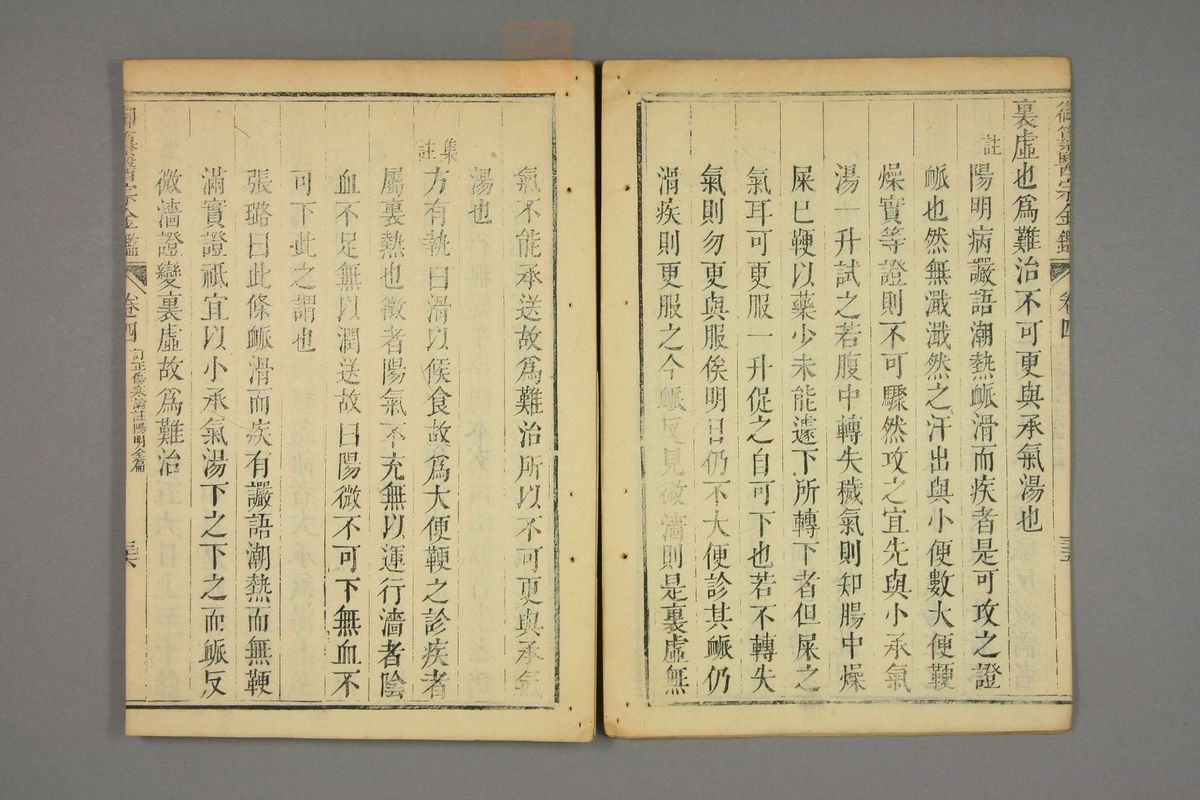 御纂醫宗金鑑 卷四 三五
裏虛也爲難治不可更與承氣湯也
註 陽明病讝語潮熱脈滑而疾者是可攻之證
脈也然無濈濈然之汗出與小便數大便鞕
燥實等證則不可驟然攻之宜先與小承氣
湯一升試之若腹中轉失穢氣則知腸中燥
屎已鞕以藥少未能遽下所轉下者但屎之
氣耳可更服一升促之自可下也若不轉失
氣則勿更與服俟明日仍不大便診其脈仍
滑疾則更服之今脈反見微濇則是裏虛無
氣不能承送故爲難治所以不可更與承氣
湯也
集註 方有執曰滑以候食故爲大便鞕之診疾者
屬裏熱也微者陽氣不充無以運行濇者陰
血不足無以潤送故曰陽微不可下無血不
可下此之謂也
張璐曰此條脈滑而疾有讝語潮熱而無鞕
滿實證祗宜以小承氣湯下之下之而脈反
微濇證變裏虛故爲難治
御纂醫宗金鑑 卷四 訂正傷寒論註陽明全篇 三六